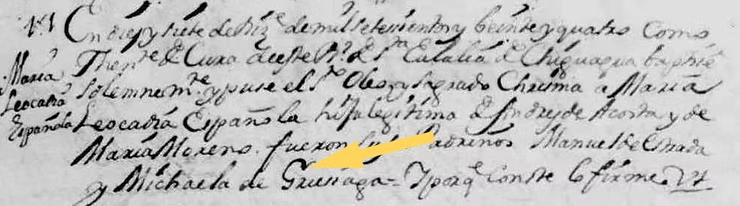 En diez y siete de Diz.e de mil setecientos y beinte y quatro como
Thente de Cura de este R.l de S.ta Eulalia de Chiguagua baptisé
Maria Solemnem.te y puse el S.to Oleo y Sagrado Chrisma a Maria
Leocadia Leocadia Española hija legitima de Andres de Acosta y de
Española Maria Moreno. fueron sus Padrinos Manuel de Estrada
y Michaela de Gruciaga = Y porq.e conste lo firmé Vt